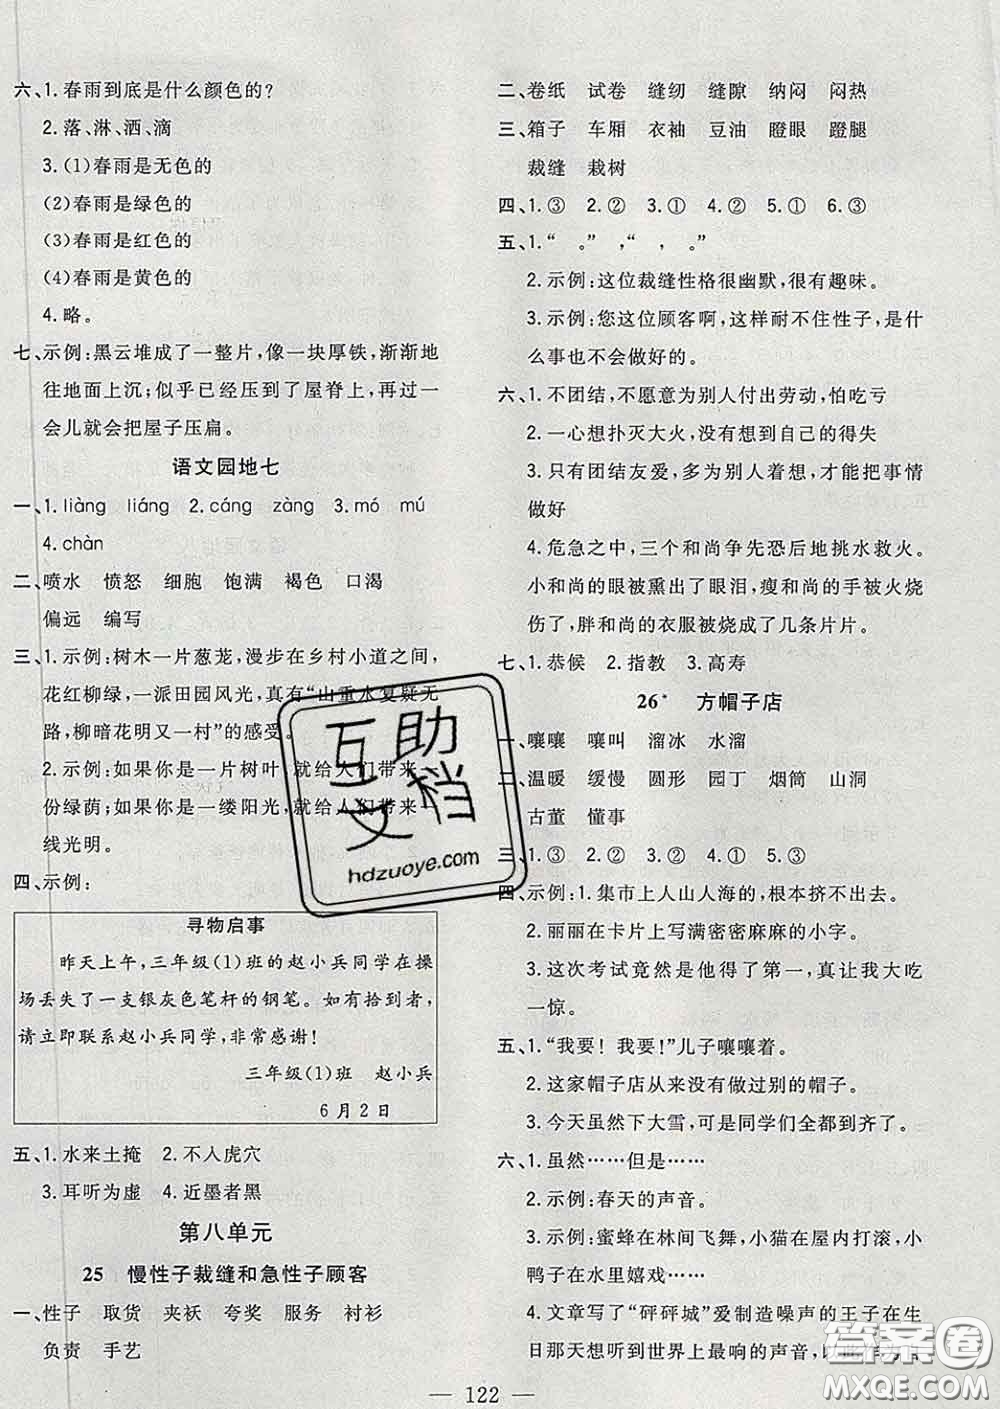 六、1.春雨到底是什么颜色的?
2.落、淋、洒、滴
3.(1)春雨是无色的
(2)春雨是绿色的
(3)春雨是红色的
(4)春雨是黄色的
4.略。
七、示例:黑云堆成了一整片,像一块厚铁,渐渐地
往地面上沉;似乎已经压到了屋脊上,再过一
会儿就会把屋子压扁。
语文园地七
一、1.liàng liáng 2.cáng zàng 3.mó mú
4.chàn
二、喷水 愤怒 细胞 饱满 褐色 口渴
偏远 编写
三、1.示例:树木一片葱茏,漫步在乡村小道之间,
花红柳绿,一派田园风光,真有“山重水复疑无
路,柳暗花明又一村”的感受。
2.示例:如果你是一片树叶,就给人们带来一
份绿荫;如果你是一缕阳光,就给人们带来一
线光明。
四、示例:
寻物启事
昨天上午,三年级(1)班的赵小兵同学在操
场丢失了一支银灰色笔杆的钢笔。如有拾到者,
请立即联系赵小兵同学,非常感谢!
三年级(1)班 赵小兵
6月2日
五、1.水来土掩 2.不入虎穴
3.耳听为虚 4.近墨者黑
第八单元
25 慢性子裁缝和急性子顾客
一、性子 取货 夹袄 夸奖 服务 衬衫
负责 手艺
二、卷纸 试卷 缝纫 缝隙 纳闷 闷热
三、箱子 车厢 衣袖 豆油 瞪眼 蹬腿
裁缝 栽树
四、1.③ 2.② 3.① 4.② 5.① 6.③
五、1.“ 。” ,“ , 。”
2.示例:这位裁缝性格很幽默,很有趣味。
3.示例:您这位顾客啊,这样耐不住性子,是什
么事也不会做好的。
六、1.不团结,不愿意为别人付出劳动,怕吃亏
2.一心想扑灭大火,没有想到自己的得失
3.只有团结友爱,多为别人着想,才能把事情
做好
4.危急之中,三个和尚争先恐后地挑水救火。
小和尚的眼被熏出了眼泪,瘦和尚的手被火烧
伤了,胖和尚的衣服被烧成了几条片片。
七、1.恭候 2.指教 3.高寿
26* 方帽子店
一、嚷嚷 嚷叫 溜冰 水溜
二、温暖 缓慢 圆形 园丁 烟筒 山洞
古董 懂事
三、1.③ 2.② 3.① 4.② 5.③
四、示例:1.集市上人山人海的,根本挤不出去。
2.丽丽在卡片上写满密密麻麻的小字。
3.这次考试竟然是他得了第一,真让我大吃
一惊。
五、1.“我要!我要!”儿子嚷嚷着。
2.这家帽子店从来没有做过别的帽子。
3.今天虽然下大雪,可是同学们全都到齐了。
六、1.虽然……但是……
2.示例:春天的声音。
3.示例:蜜蜂在林间飞舞,小猫在屋内打滚,小
鸭子在水里嬉戏……
4.文章写了“砰砰城”爱制造噪声的王子在生
日那天想听到世界上最响的声音,以
— 122 —
互助
文档
hdzuoye.com
答案圈
MXQE.COM